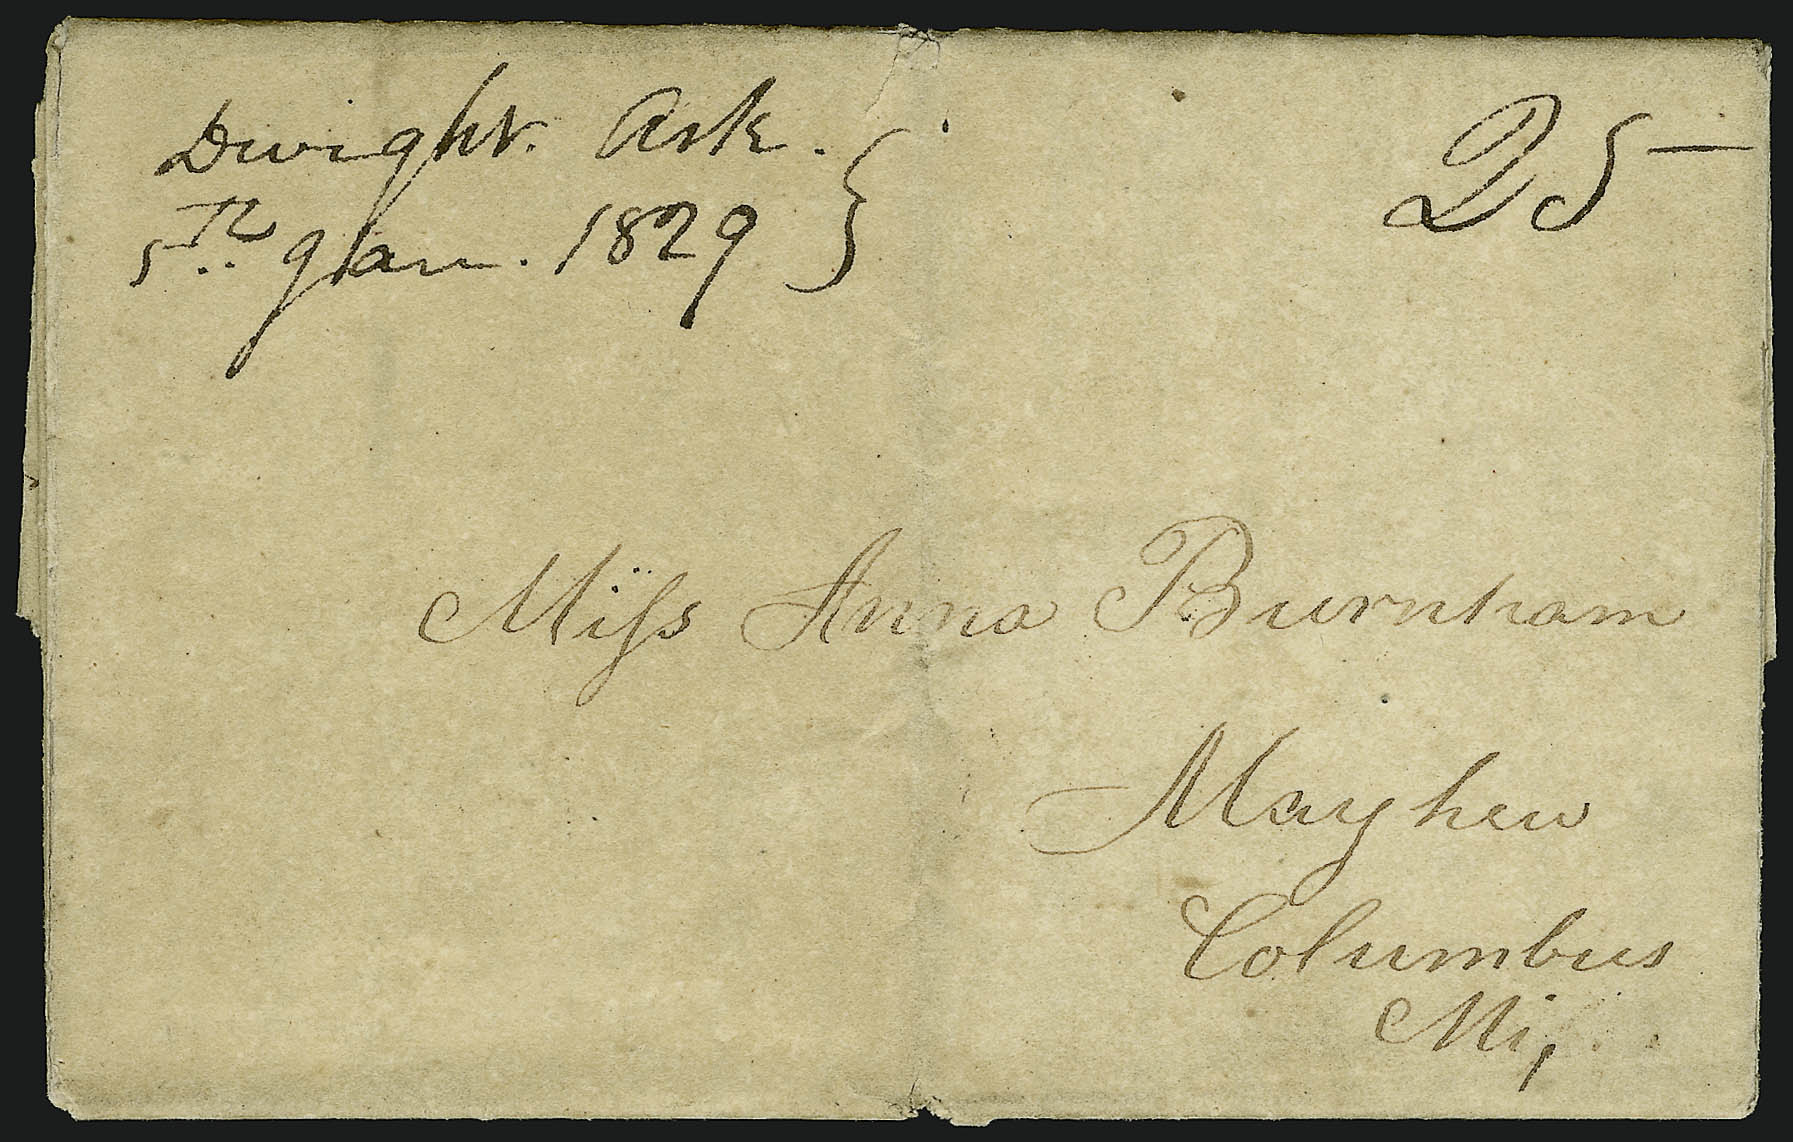 Dwight. Ark. 25
5th Jan. 1829
Miſs Anna Burnham
Mayhew
Columbus
Miſ